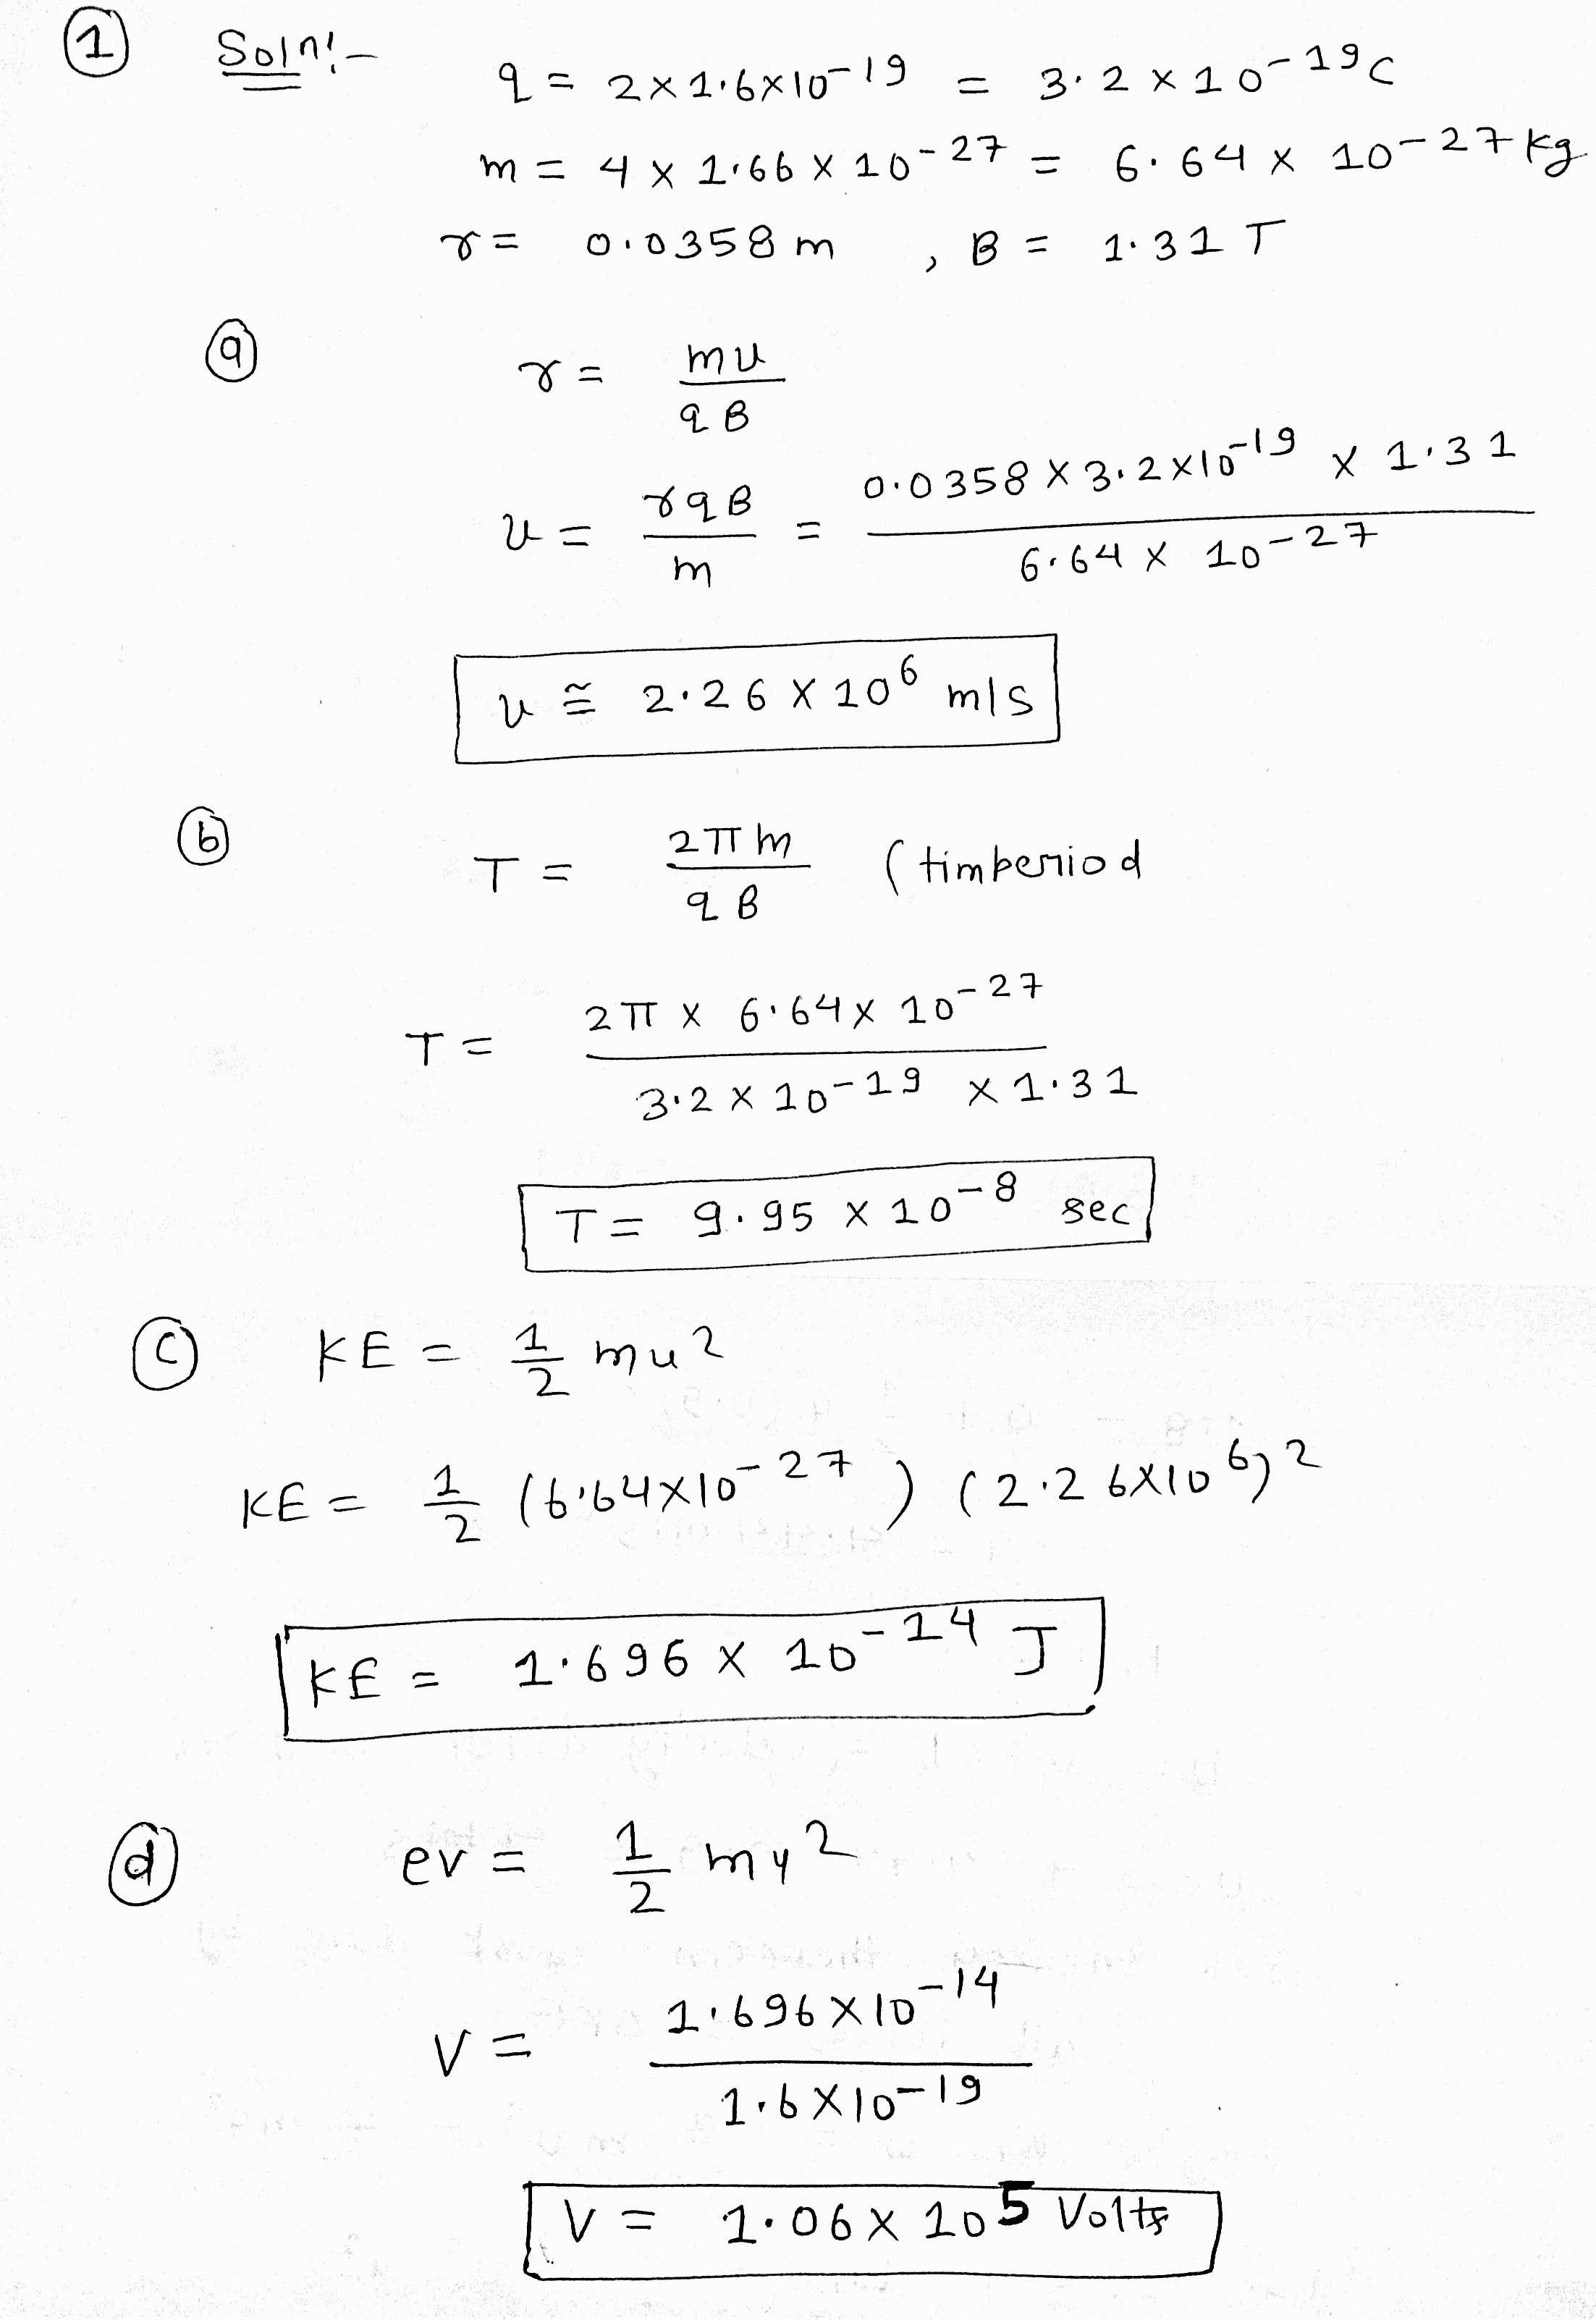 ① Soln!-
q = 2×1.6×10⁻¹⁹ = 3.2 × 10⁻¹⁹C
m = 4 × 1.66 × 10⁻²⁷ = 6.64 × 10⁻²⁷ kg
r = 0.0358 m , B = 1.31 T
ⓐ r = mu/qB
u = rqB/m = (0.0358 × 3.2×10⁻¹⁹ × 1.31)/(6.64 × 10⁻²⁷)
u ≅ 2.26 × 10⁶ m/s
ⓑ T = 2πm/qB (timperiod
T = (2π × 6.64 × 10⁻²⁷)/(3.2 × 10⁻¹⁹ × 1.31)
T = 9.95 × 10⁻⁸ sec
ⓒ KE = 1/2 mu²
KE = 1/2 (6.64×10⁻²⁷) (2.26×10⁶)²
KE = 1.696 × 10⁻¹⁴ J
ⓓ ev = 1/2 my²
V = (1.696×10⁻¹⁴)/(1.6×10⁻¹⁹)
V = 1.06 × 10⁵ Volts